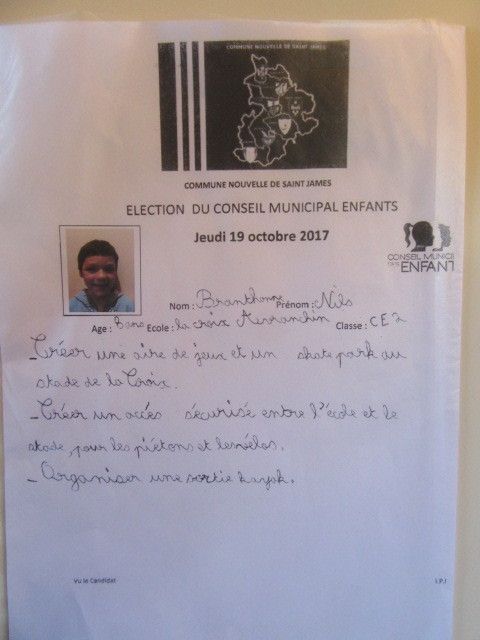 COMMUNE NOUVELLE DE SAINT JAMES
COMMUNE NOUVELLE DE SAINT JAMES
ELECTION DU CONSEIL MUNICIPAL ENFANTS
Jeudi 19 octobre 2017
CONSEIL MUNICI
ENFANT
Nom : Branthomme Prénom : Nils
Age : 8 ans Ecole : la croix Avranchin Classe : CE2
- Créer une aire de jeux et un skate park au
stade de la Croix.
- Créer un accès sécurisé entre l'école et le
stade pour les piétons et les vélos.
- Organiser une sortie kayak.
Vu le Candidat
I.P.